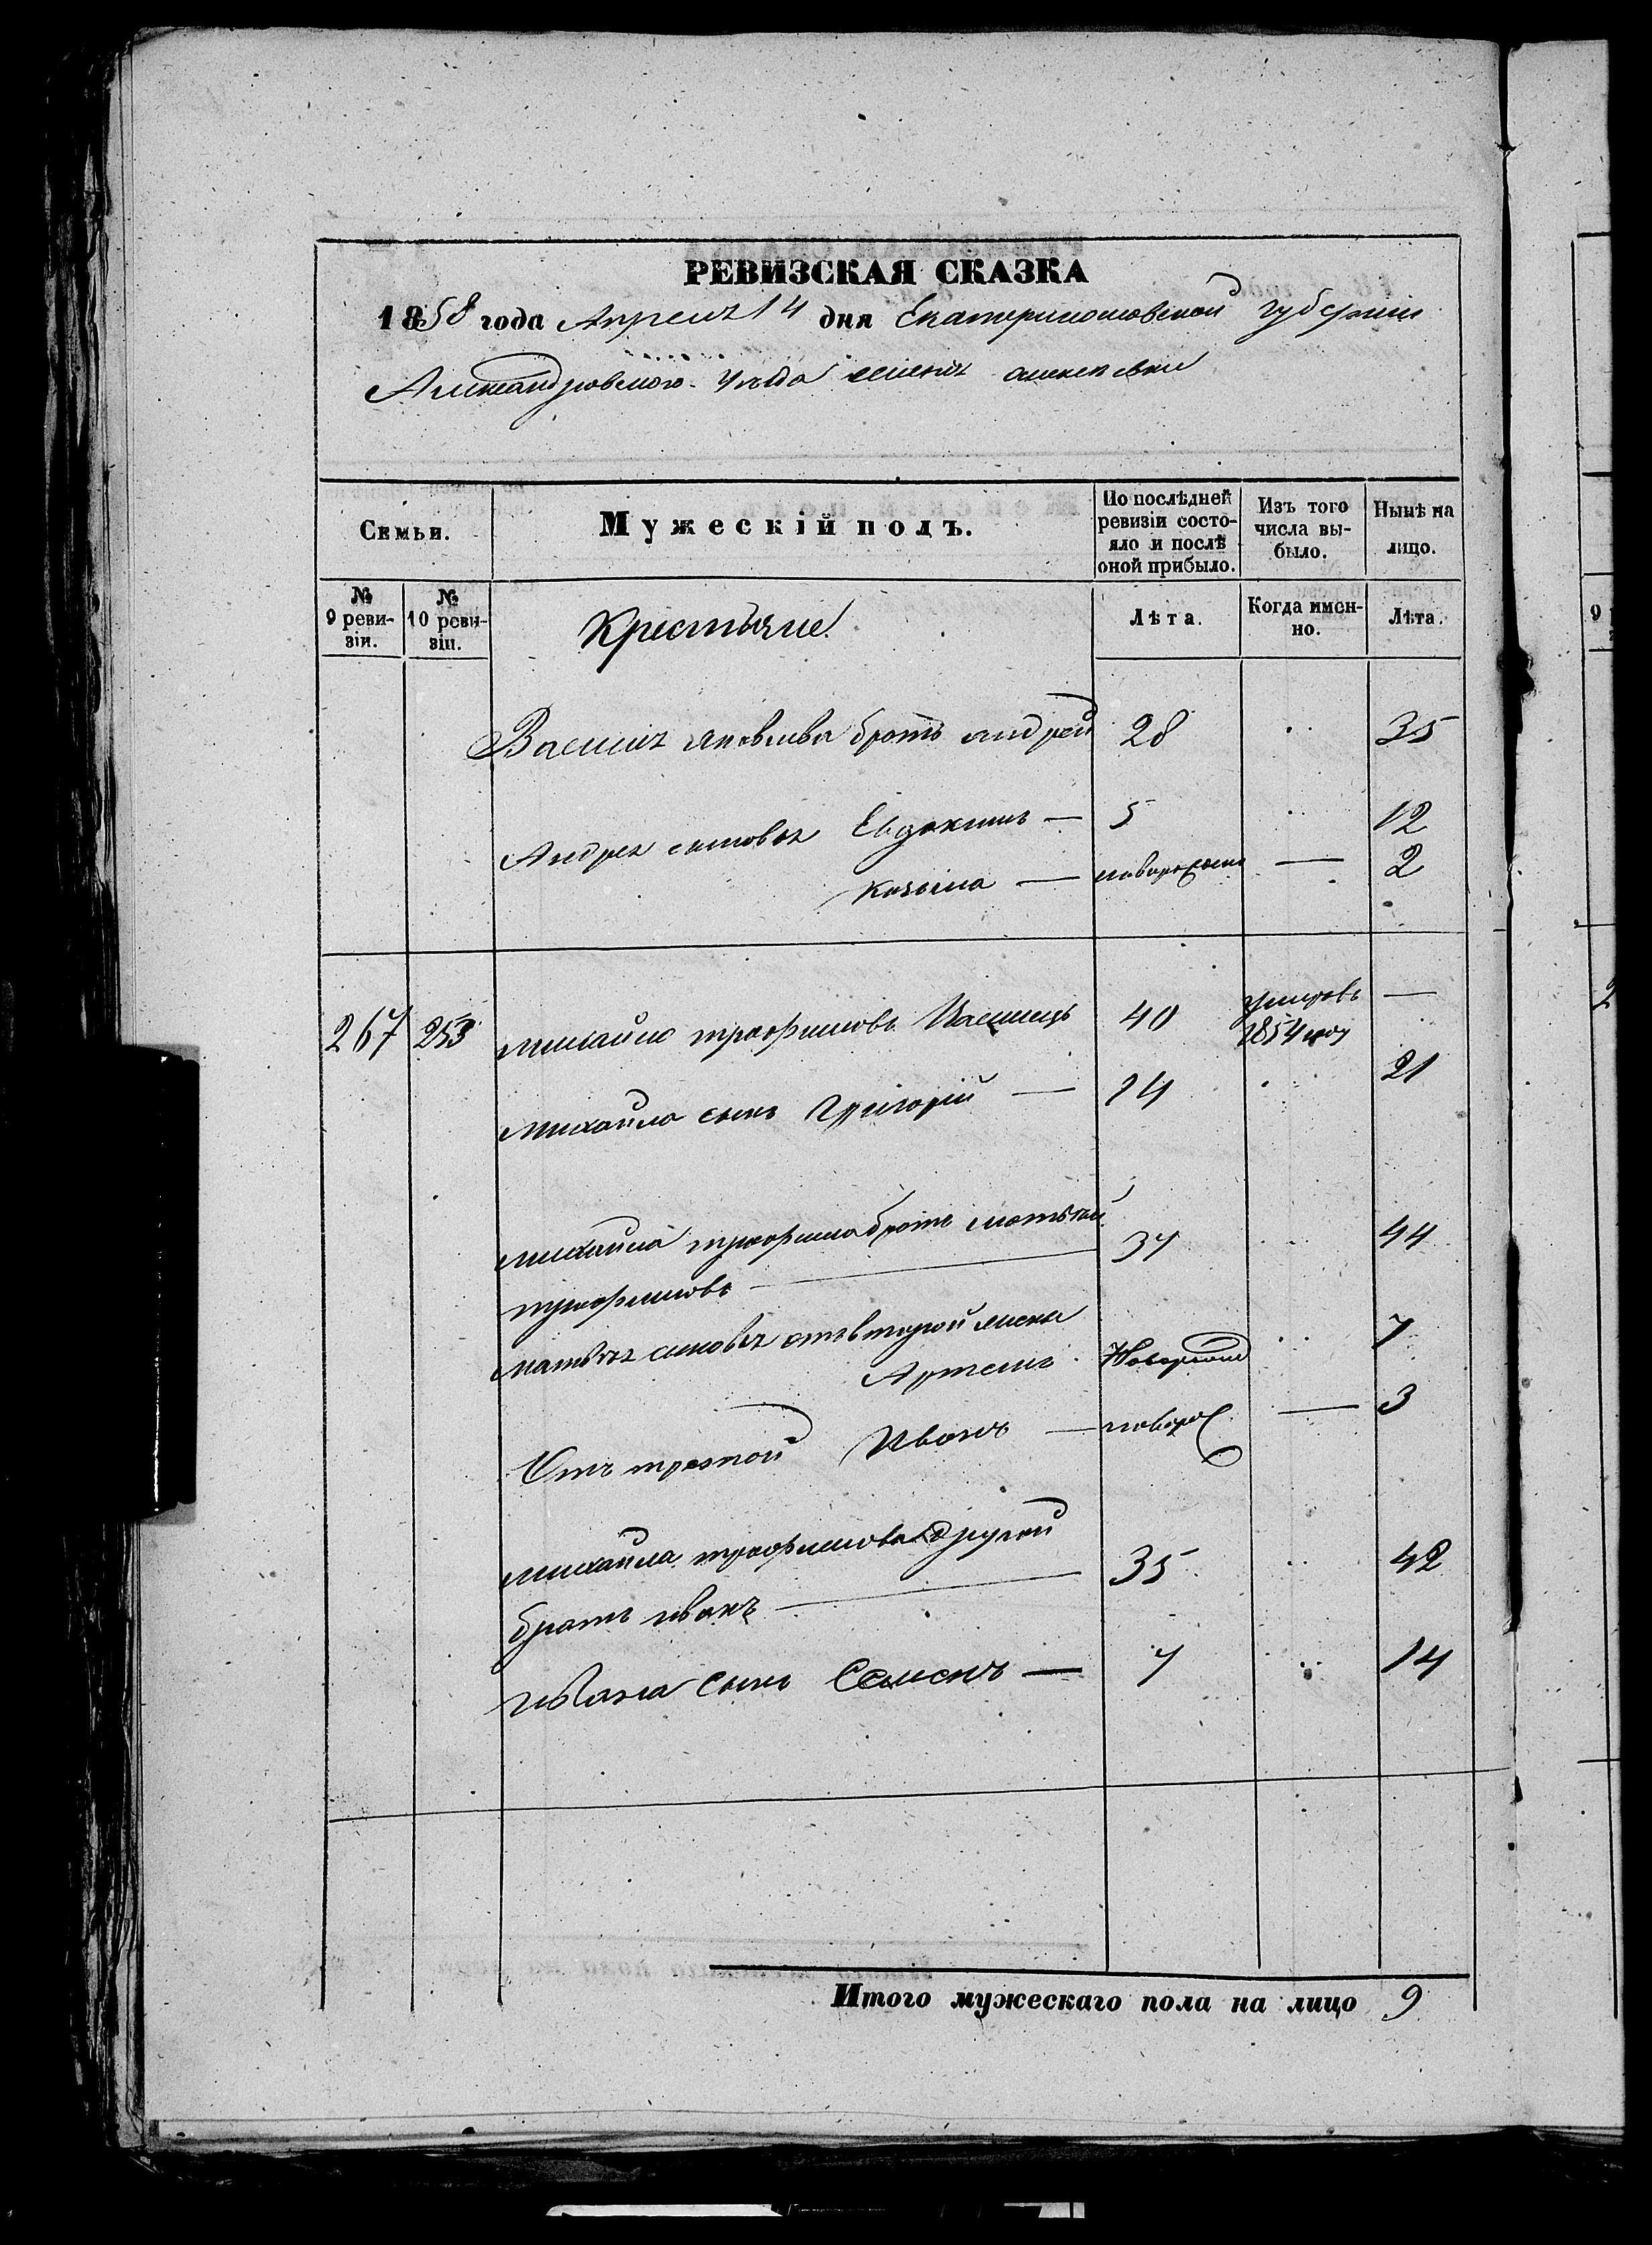 РЕВИЗСКАЯ СКАЗКА
1858 года Апреля 14 дня Екатеринославской губернии
Александровского уезда
Семьи.
Мужескій полъ.
По послѣдней ревизіи состояло и послѣ оной прибыло.
Изъ того числа выбыло.
Нынѣ на лицо.
№ 9 ревизіи.
№ 10 ревизіи.
Крестьяне
Лѣта.
Когда именно.
Лѣта.
Василя яковлева братъ андрей 28 35
Андрея сыновья Евдокимъ — 5 12
Козьма — новорожден — 2
267 253 михайло трофимовъ 40 умеръ 1854 году —
михайла сынъ Григорій — 14 21
михайла трофима братъ матвѣй
трофимовъ — 37 44
матвѣя сыновья отъ второй жены
Артемъ Новорожд 7
Отъ третей Иванъ — новорож — 3
михайла трофимова другой
братъ иванъ — 35 42
ивана сынъ Семенъ — 7 14
Итого мужескаго пола на лицо 9